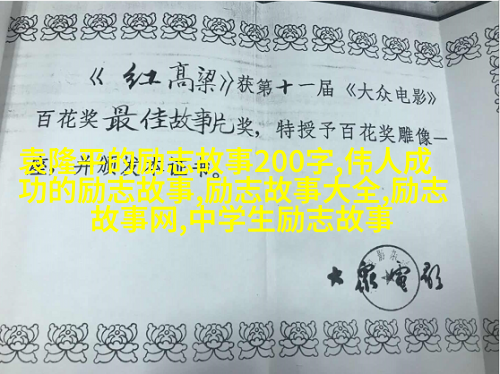 《红高粱》获第十一届《大众电影》
百花奖最佳故事片奖，特授予百花奖雕像一
座，并颁发本证书。
袁隆平的励志故事200字,伟人成
功的励志故事,励志故事大全,励志
故事网,中学生励志故事
大众电影